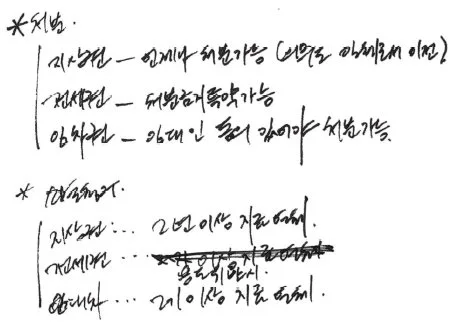 * 처분.
지상권 — 언제나 처분가능 (의무도 일체로서 이전)
전세권 — 처분금지특약가능
임차권 — 임대인 동의 있어야 처분가능.
*
지상권 ... 2년 이상 지료 연체.
전세권 ...
용도위반시.
임대차 ... 2기 이상 지료 연체.